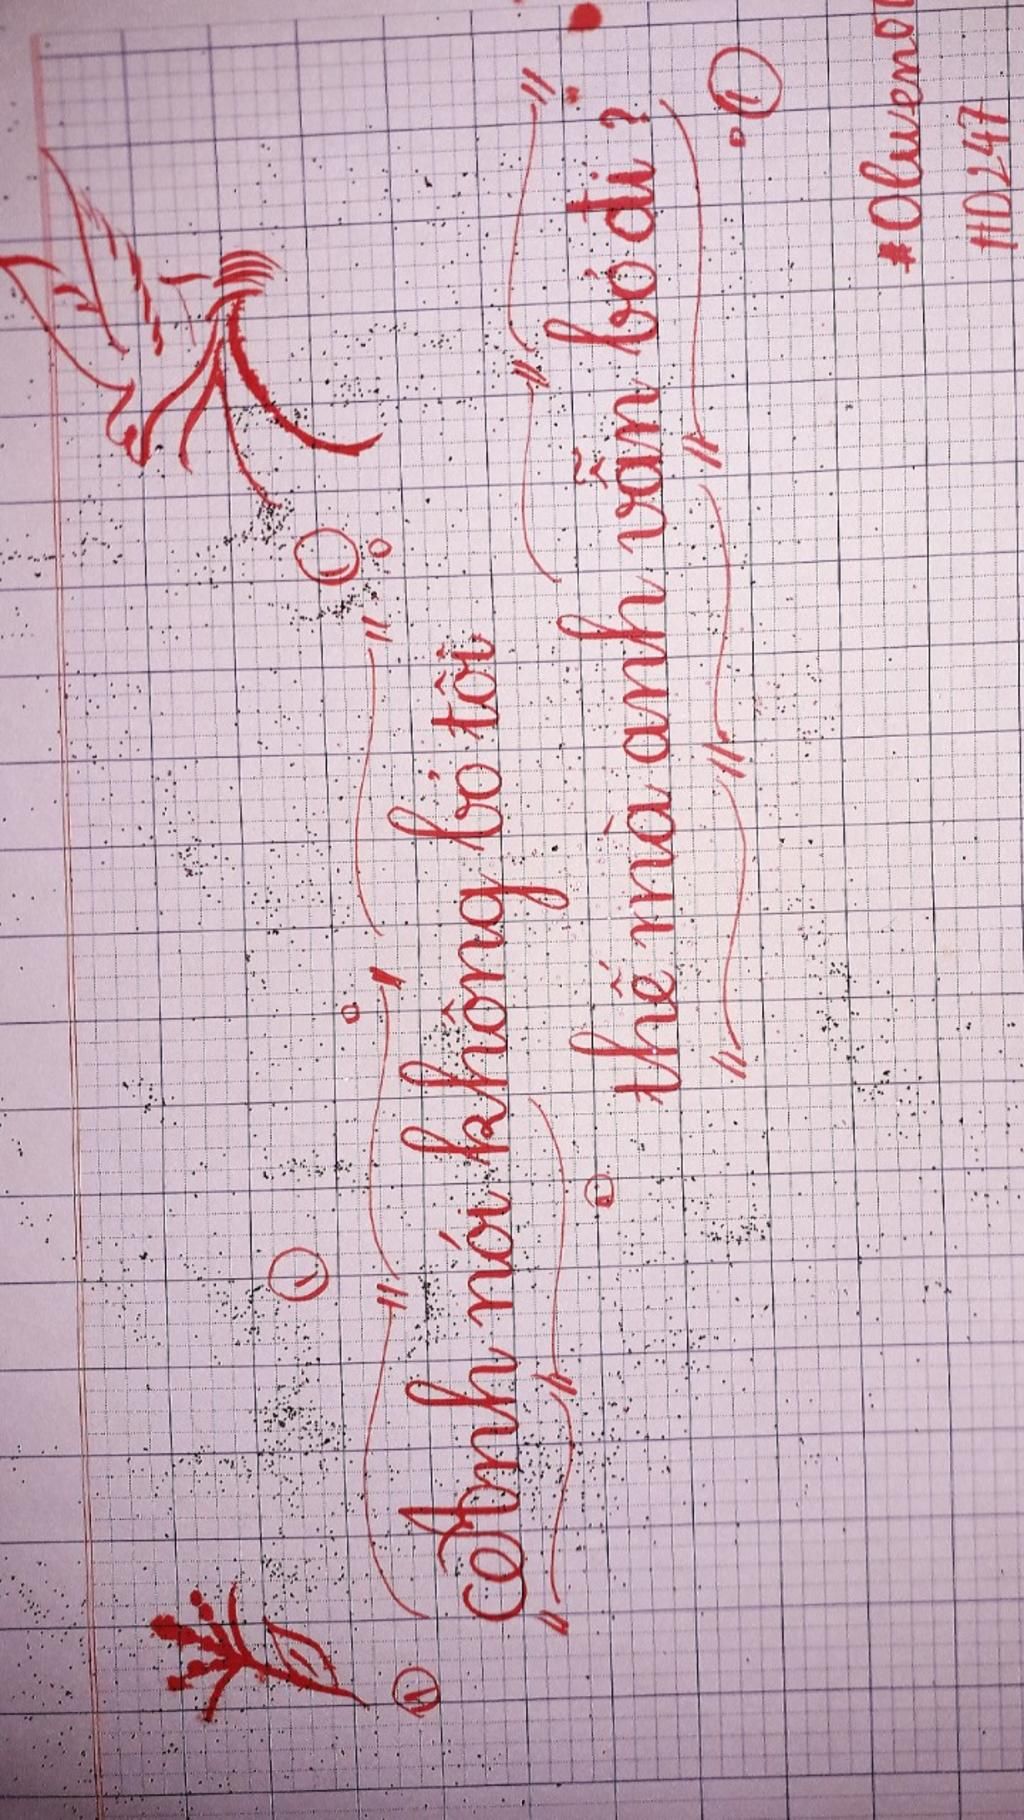 Anh nói không bỏ tôi
thế mà anh vẫn bỏ đi ?
HD247